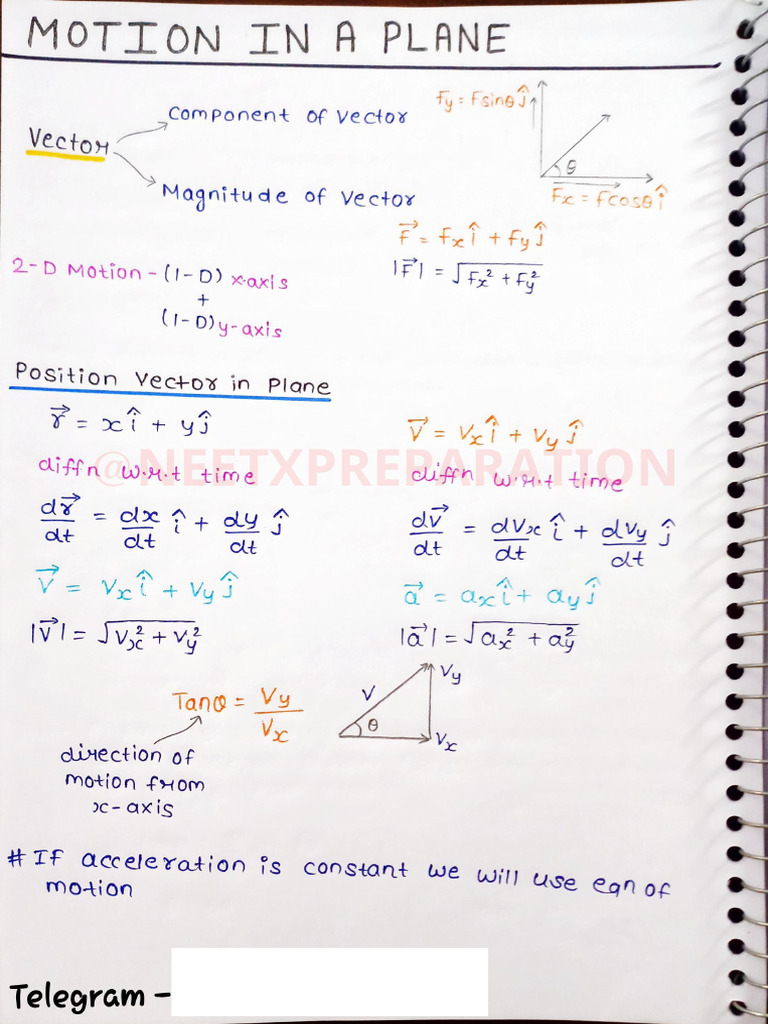 MOTION IN A PLANE
Component of Vector
Vector
Magnitude of Vector
Fy = Fsinθ ĵ
θ
Fx = Fcosθ î
F⃗ = Fx î + Fy ĵ
|F⃗| = √Fx² + Fy²
2-D Motion - (1-D) x-axis
+
(1-D) y-axis
Position Vector in Plane
r⃗ = xî + yĵ
diffn w.r.t time
dr⃗/dt = dx/dt î + dy/dt ĵ
V⃗ = Vx î + Vy ĵ
|V⃗| = √Vx² + Vy²
V⃗ = Vx î + Vy ĵ
diffn w.r.t time
dv⃗/dt = dVx/dt î + dVy/dt ĵ
a⃗ = ax î + ay ĵ
|a⃗| = √ax² + ay²
@NEETXPREPARATION
Tanθ = Vy/Vx
direction of
motion from
x-axis
V
Vy
θ
Vx
# If acceleration is constant we will use eqn of
motion
Telegram -